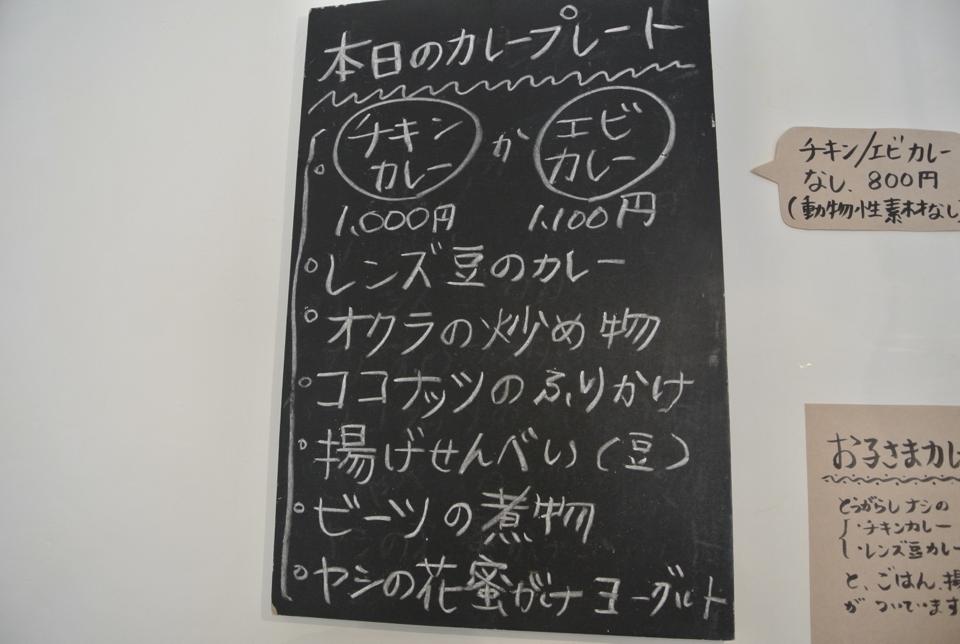 本日のカレープレート
チキン か エビ
カレー カレー
1,000円 1,100円
レンズ豆のカレー
オクラの炒め物
ココナッツのふりかけ
揚げせんべい(豆)
ビーツの煮物
ヤシの花蜜がけヨーグルト
チキン/エビカレー
なし、800円
(動物性素材なし)
お子さまカレ
とうがらしナシの
・チキンカレー
・レンズ豆カレー
と、ごはん、揚
がついています